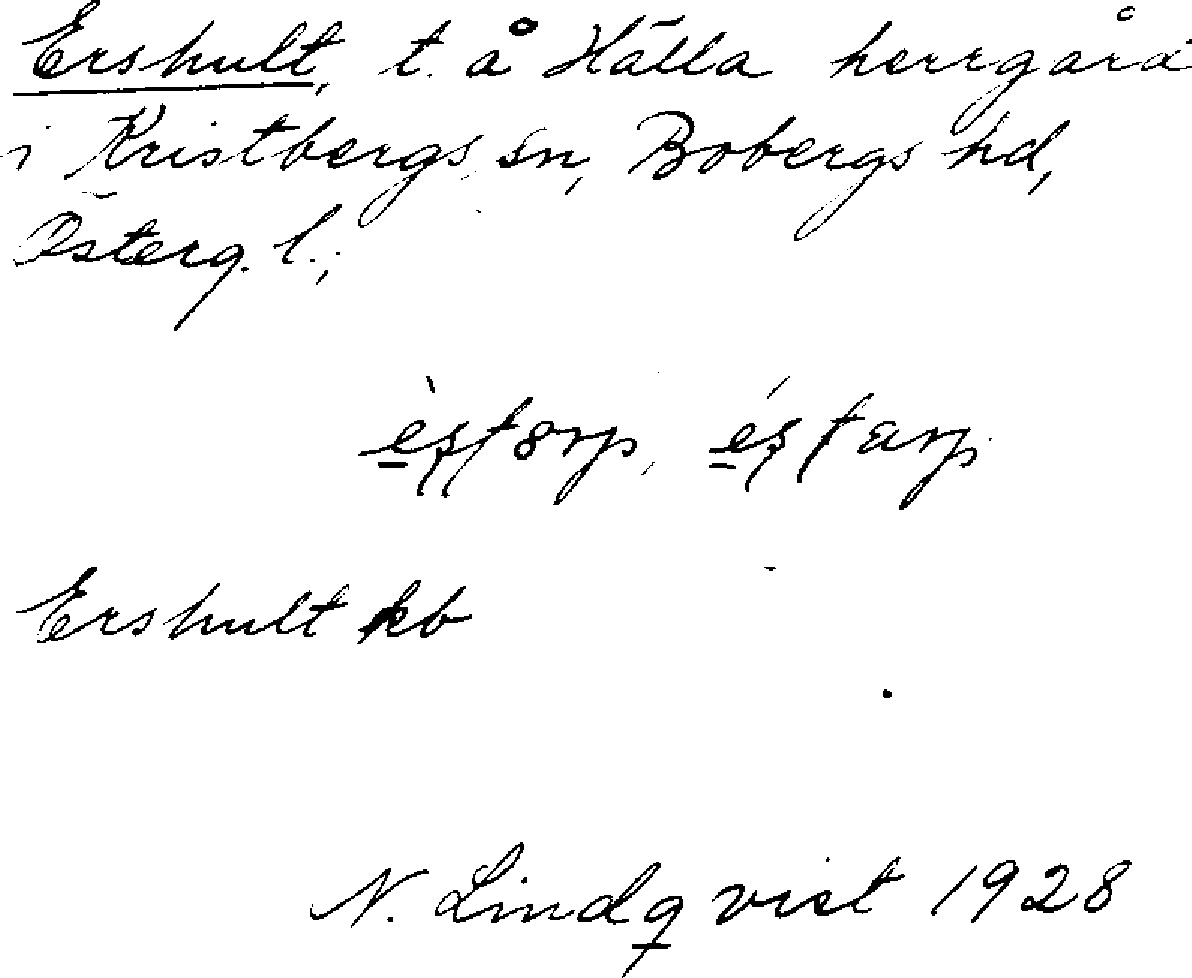 Ershult, t. å Hälla herrgård
i Kristbergs sn, Bobergs hd,
Österg. l.;
Ershult kb
N. Lindqvist 1928